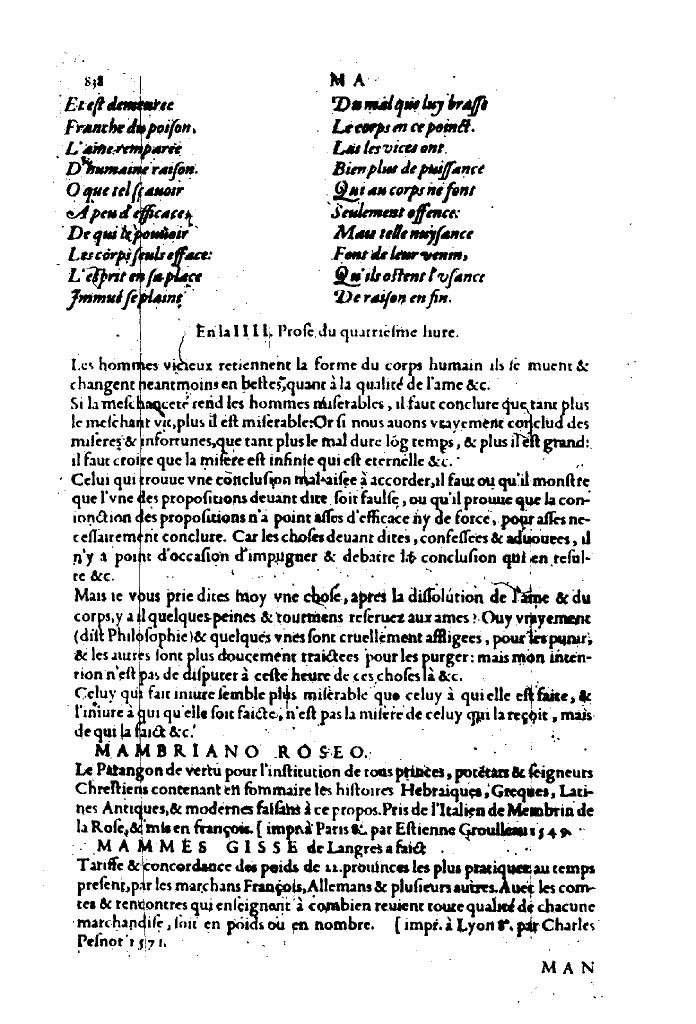 838 MA
Et est demeuree
Franche du poison,
L'ame remparée
D'humaine raison.
O que tel sçauoir
A peu d'efficace,
De qui le pouuoir
Les corps seuls efface:
L'esprit en sa place
Immué se plaint
Du mal que luy brasse
Le corps en ce poinct.
Las les vices ont
Bien plus de puissance
Qui au corps ne font
Seulement offence:
Mais telle nuysance
Font de leur venin,
Qu'ils ostent l'vsance
De raison en fin.
En la IIII. Prose du quatriesme liure.
Les hommes vicieux retiennent la forme du corps humain ils se muent &
changent neantmoins en bestes, quant à la qualité de l'ame &c.
Si la meschanceté rend les hommes miserables, il faut conclure que tant plus
le meschant vit, plus il est miserable: Or si nous auons vrayement conclud des
miseres & infortunes, que tant plus le mal dure lõg temps, & plus il est grand:
il faut croire que la misere est infinie qui est eternelle &c.
Celui qui trouue vne conclusion mal-aisee à accorder, il faut ou qu'il monstre
que l'vne des propositions deuant dite soit faulse, ou qu'il prouue que la con-
ionction des propositions n'a point asses d'efficace ny de force, pour asses ne-
cessairement conclure. Car les choses deuant dites, confessees & aduouees, il
n'y a point d'occasion d'impugner & debatre la conclusion qui en resul-
te &c.
Mais ie vous prie dites moy vne chose, apres la dissolution de l'ame & du
corps, y a il quelques peines & tourmens reseruez aux ames? Ouy vrayement
(dist Philosophie) & quelques vnes sont cruellement affligees, pour les punir,
& les autres sont plus doucement traictees pour les purger: mais mon inten-
tion n'est pas de disputer à ceste heure de ces choses là &c.
Celuy qui fait iniure semble plus miserable que celuy à qui elle est faite, &
l'iniure à qui qu'elle soit faicte, n'est pas la misere de celuy qui la reçoit, mais
de qui la faict &c.
MAMBRIANO ROSEO.
Le Patangon de vertu pour l'institution de tous princes, potẽtats & seigneurs
Chrestiens contenant en sommaire les histoires Hebraiques, Grecques, Lati-
nes Antiques, & modernes faisans à ce propos. Pris de l'Italien de Membrin de
la Rose, & mis en françois. [impr. à Paris 8. par Estienne Groulleau 1549.
MAMMÉS GISSE de Langres a faict
Tariffe & concordance des poids de 22. prouinces les plus pratiquez au temps
present, par les marchans François, Allemans & plusieurs autres. Auec les com-
tes & rencontres qui enseignent à combien reuient toute qualité de chacune
marchandise, soit en poids ou en nombre. [impr. à Lyon 8. par Charles
Pesnot 1571.
MAN